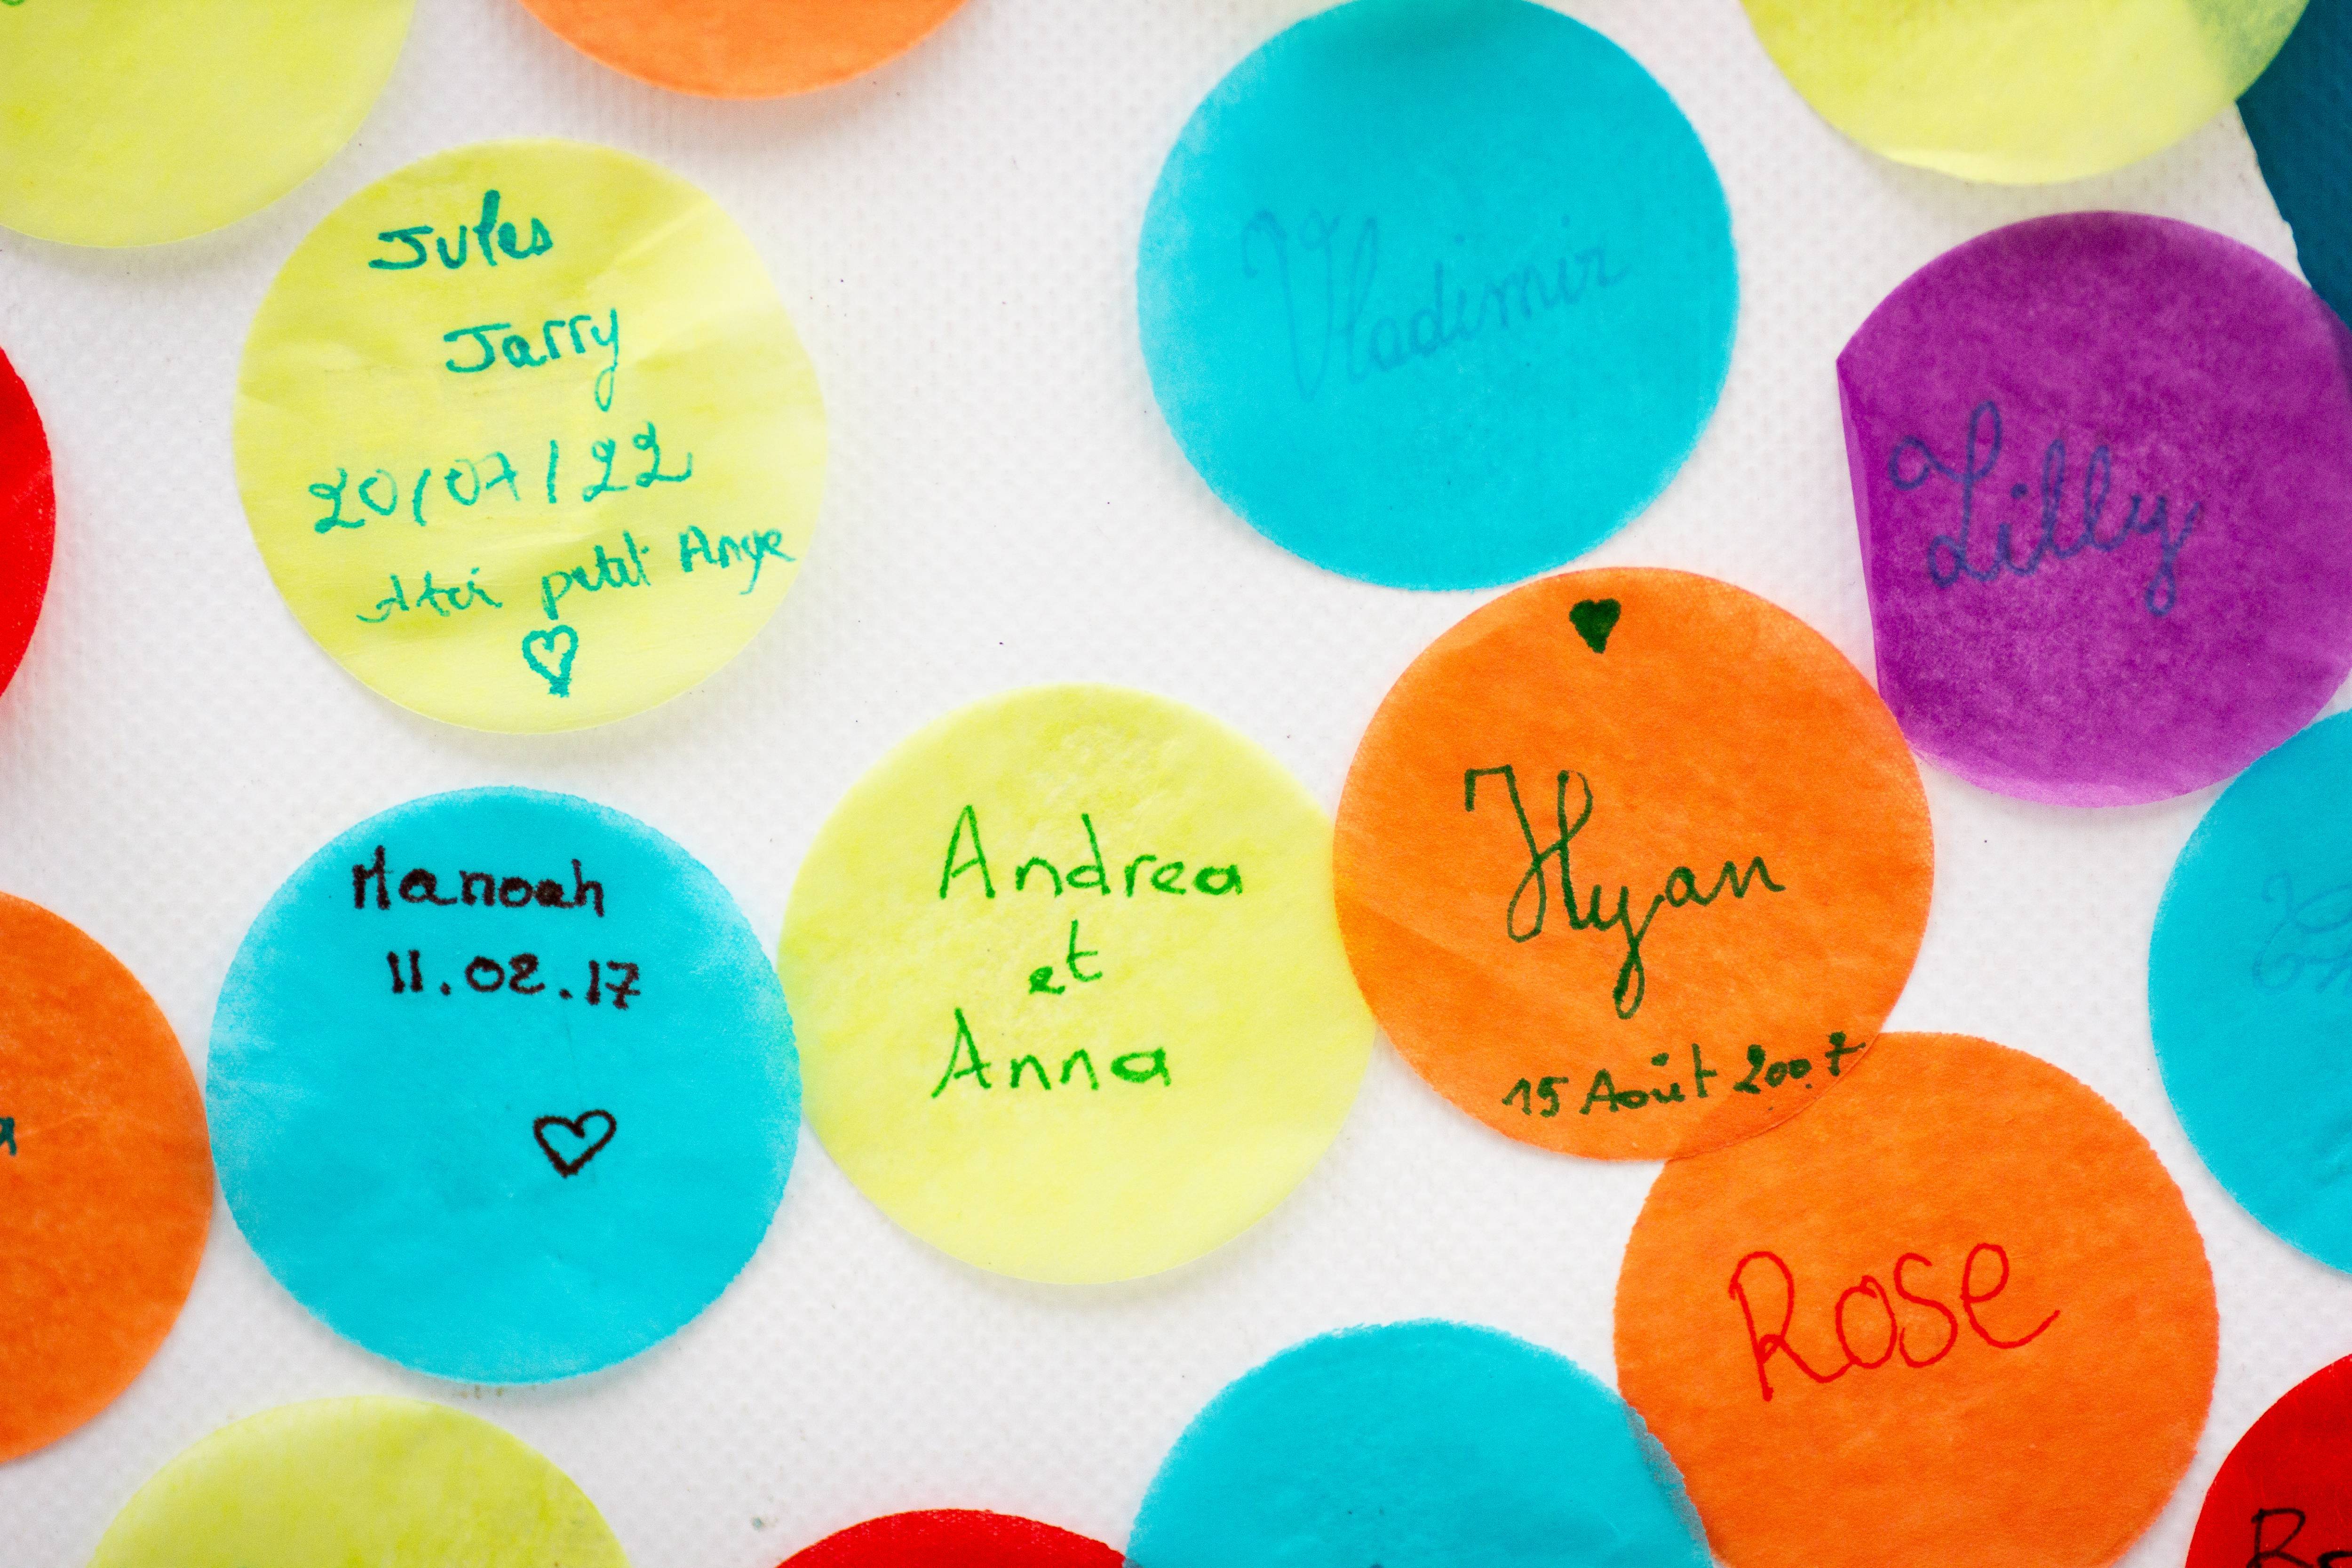 Jules
Jarry
20/07/22
A toi petit Ange
Vladimir
Lilly
Manoah
11.02.17
Andrea
et
Anna
Hyan
15 Août 2007
Rose